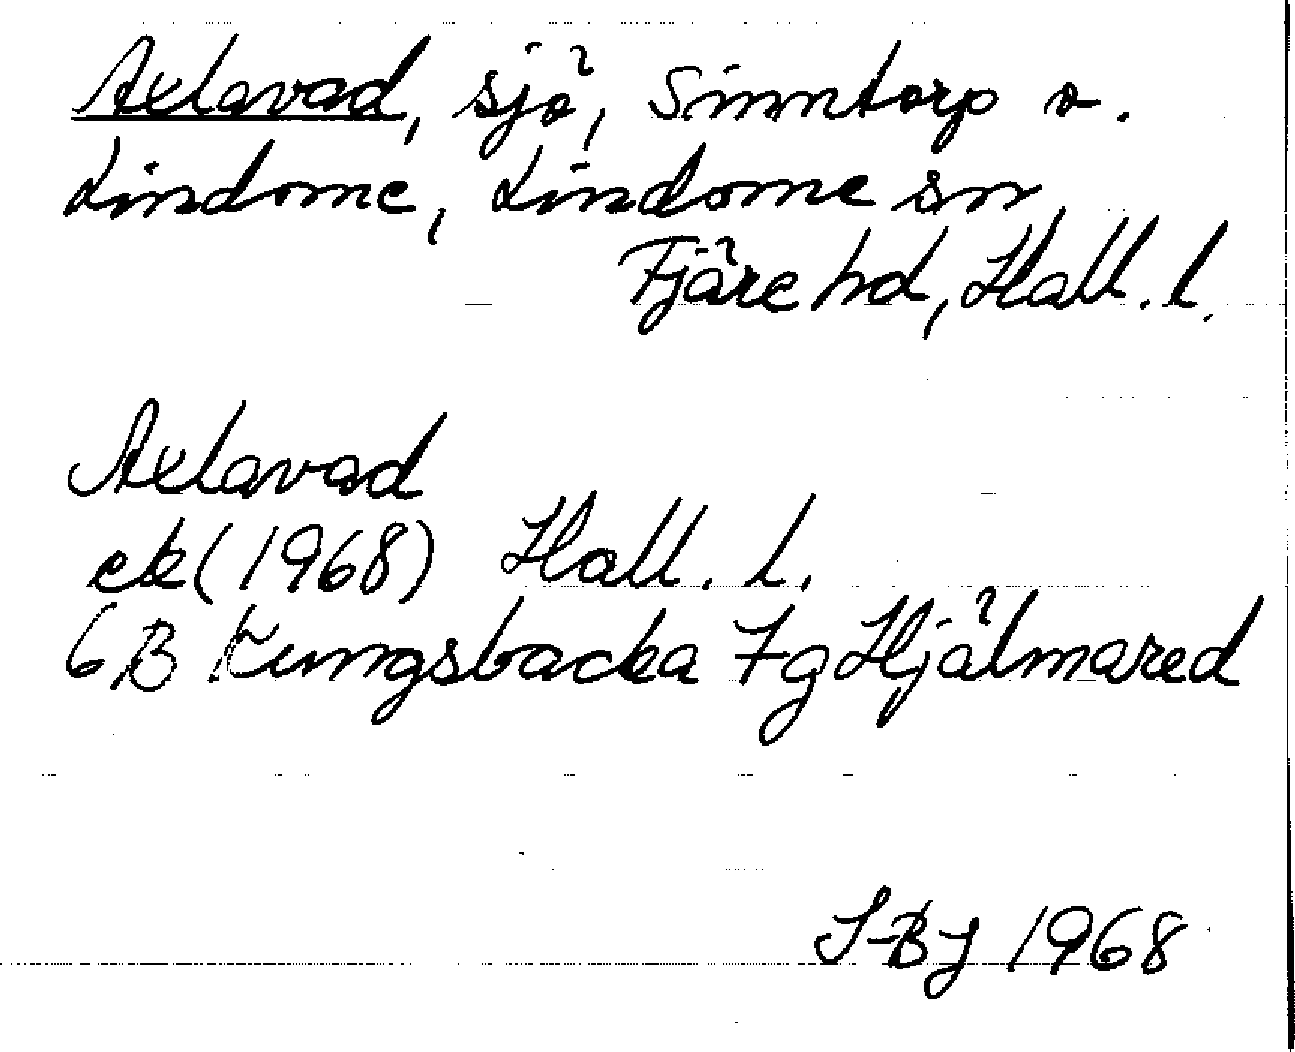 Axlavad, sjö, Sinntorp o.
Lindome, Lindome sn
Fjäre hd, Hall. l.
Axlavad
ek (1968) Hall. l.
6 B Kungsbacka 7 g Hjälmared
S-BJ 1968